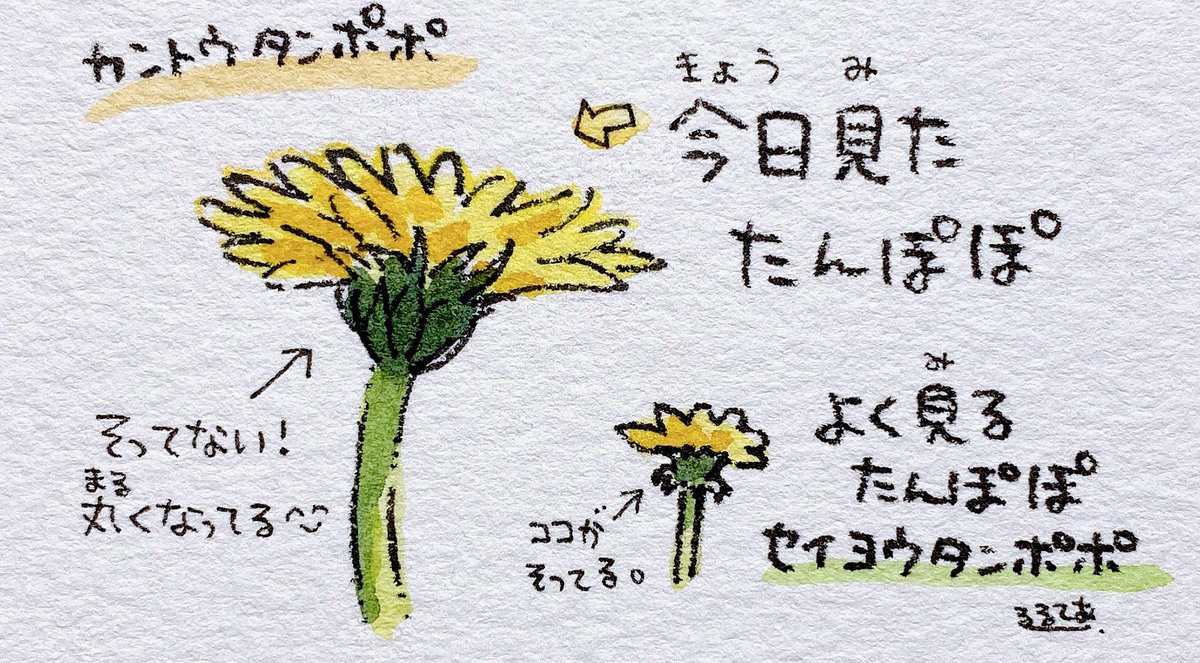 カントウタンポポ
きょう み
今日見た
たんぽぽ
そってない!
まる
丸くなってる^^
み
よく見る
たんぽぽ
セイヨウタンポポ
ココが
そってる。
るるてあ.